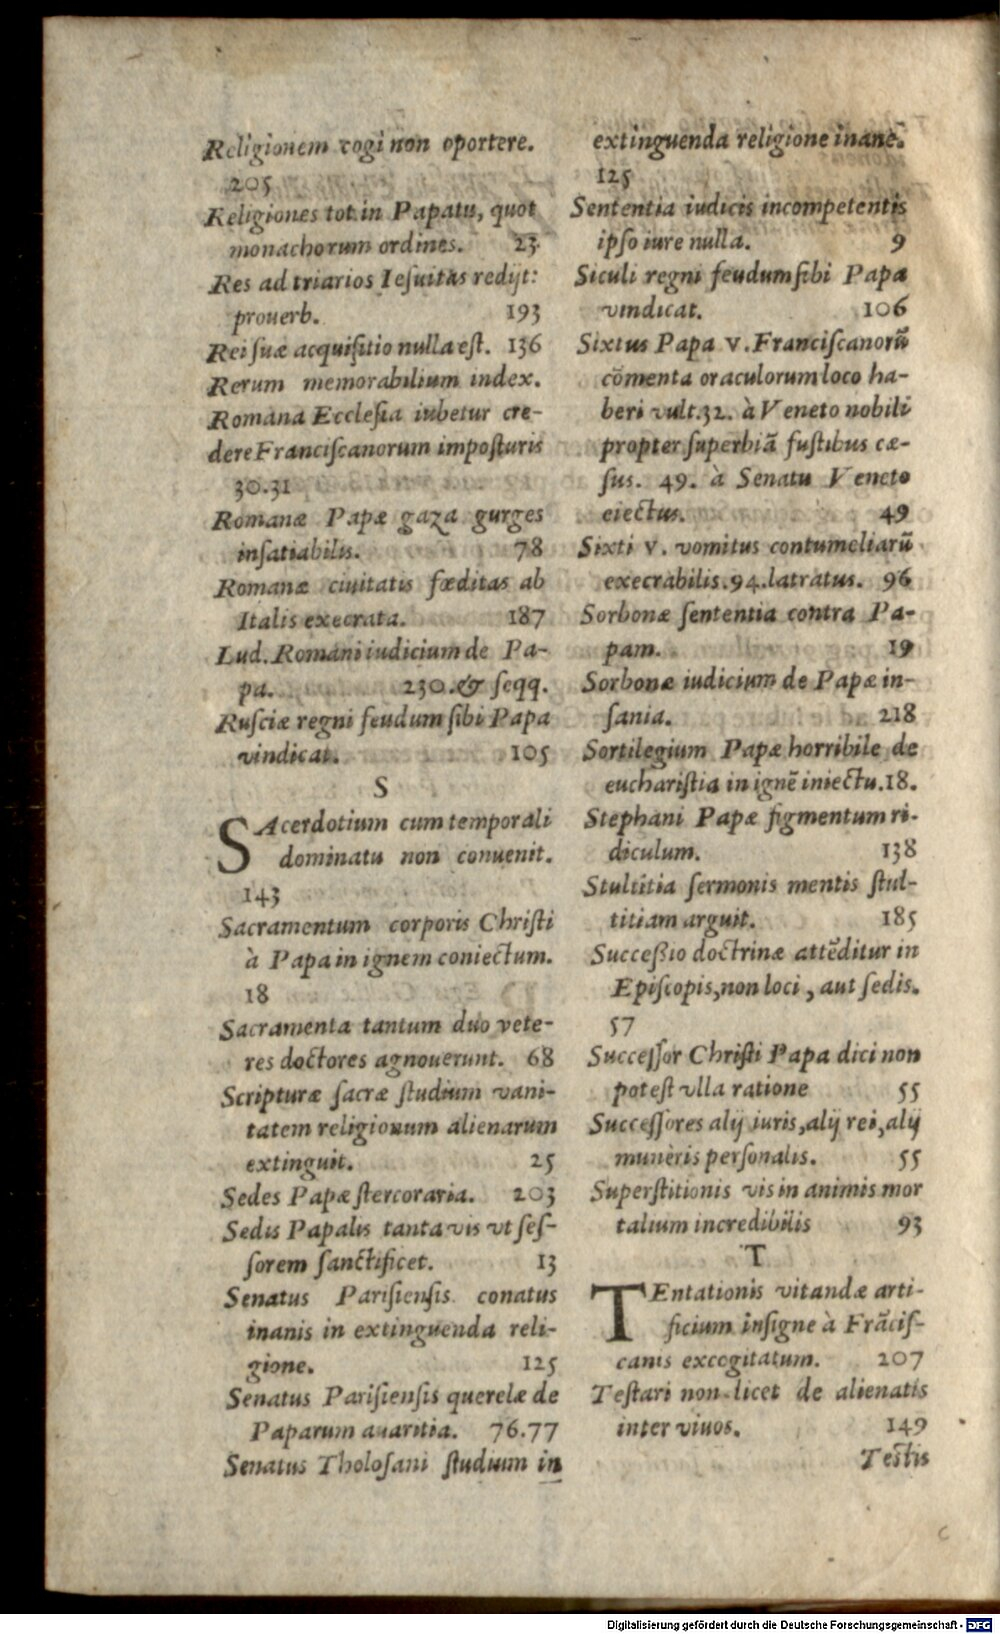 Religionem cogi non oportere.
205
Religiones tot in Papatu, quot
monachorum ordines. 23.
Res ad triarios Ieſuitas redijt:
prouerb. 193
Rei ſuæ acquiſitio nulla eſt. 136
Rerum memorabilium index.
Romana Eccleſia iubetur cre-
dere Franciſcanorum impoſturis
30.31
Romanæ Papæ gaza gurges
inſatiabilis. 78
Romanæ ciuitatis fœditas ab
Italis execrata. 187
Lud. Romani iudicium de Pa-
pa. 230.& ſeqq.
Ruſciæ regni feudum ſibi Papa
vindicat. 105
S
SAcerdotium cum temporali
dominatu non conuenit.
143
Sacramentum corporis Chriſti
à Papa in ignem coniectum.
18
Sacramenta tantum duo vete-
res doctores agnouerunt. 68
Scripturæ ſacræ ſtudium vani-
tatem religionum alienarum
extinguit. 25
Sedes Papæ ſtercoraria. 203
Sedis Papalis tanta vis vt ſeſ-
ſorem ſanctificet. 13
Senatus Pariſienſis conatus
inanis in extinguenda reli-
gione. 125
Senatus Pariſienſis querelæ de
Paparum auaritia. 76.77
Senatus Tholoſani ſtudium in
extinguenda religione inane.
125
Sententia iudicis incompetentis
ipſo iure nulla. 9
Siculi regni feudum ſibi Papa
vindicat. 106
Sixtus Papa v. Franciſcanorū
cōmenta oraculorum loco ha-
beri vult.32. à Veneto nobili
propter ſuperbiā fuſtibus cæ-
ſus. 49. à Senatu Veneto
eiectus. 49
Sixti v. vomitus contumeliarū
execrabilis.94.latratus. 96
Sorbonæ ſententia contra Pa-
pam. 19
Sorbonæ iudicium de Papæ in-
ſania. 218
Sortilegium Papæ horribile de
euchariſtia in ignē iniectu.18.
Stephani Papæ figmentum ri-
diculum. 138
Stultitia ſermonis mentis ſtul-
titiam arguit. 185
Succeßio doctrinæ attēditur in
Epiſcopis, non loci, aut ſedis.
57
Succeſſor Chriſti Papa dici non
poteſt vlla ratione 55
Succeſſores alij iuris, alij rei, alij
muneris perſonalis. 55
Superſtitionis vis in animis mor
talium incredibilis 93
T
TEntationis vitandæ arti-
ficium inſigne à Frāciſ-
canis excogitatum. 207
Teſtari non licet de alienatis
inter viuos. 149
Teſtis
c
Digitalisierung gefördert durch die Deutsche Forschungsgemeinschaft - DFG